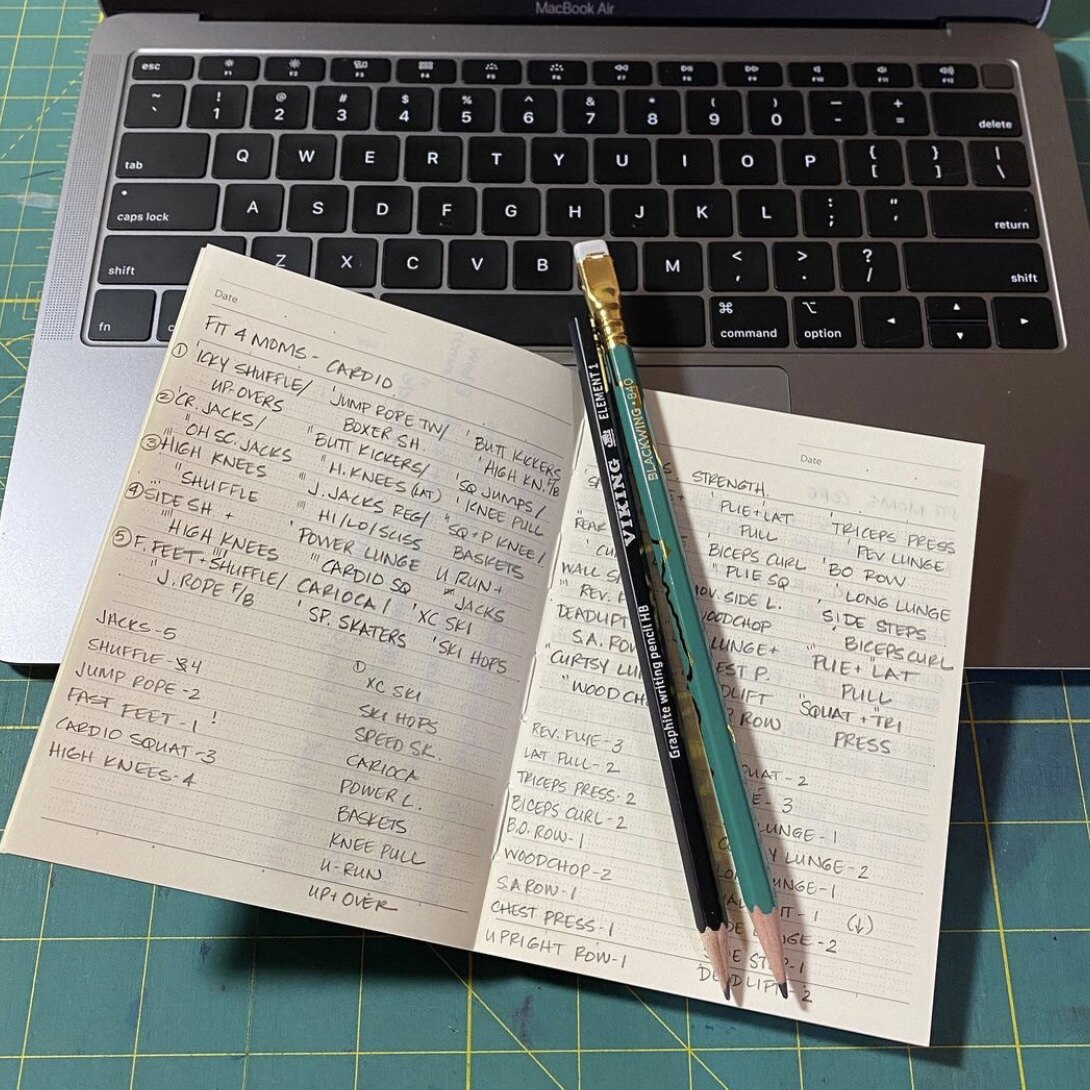 MacBook Air
esc F1 F2 F3 F4 F5 F6 F7 F8 F9 F10 F11 F12
~ ` ! 1 @ 2 # 3 $ 4 % 5 ^ 6 & 7 * 8 ( 9 ) 0 — - + = delete
tab Q W E R T Y U I O P { [ } ] | \
caps lock A S D F G H J K L : ; " ' return
shift Z X C V B M < , > . ? / shift
fn ⌘ command ⌥ option
Date
FIT 4 MOMS - CARDIO
① 'ICKY SHUFFLE/ 'JUMP ROPE TW/ 'BUTT KICKERS
UP-OVERS BOXER SH. HIGH KN. F/B
② CR. JACKS/ "BUTT KICKERS/ 'SQ JUMPS/
"OH SC. JACKS "H. KNEES (LAT) 'KNEE PULL
③ HIGH KNEES "J. JACKS REG/ "SQ + P KNEE/
"SHUFFLE HI/LO/SCISS BASKETS
④ SIDE SH + 'POWER LUNGE U RUN +
HIGH KNEES CARDIO SQ JACKS
⑤ F. FEET + SHUFFLE/ CARIOCA/ 'XC SKI
"J. ROPE F/B 'SP. SKATERS 'SKI HOPS
JACKS - 5
SHUFFLE - 4
JUMP ROPE - 2
FAST FEET - 1 !
CARDIO SQUAT - 3
HIGH KNEES - 4
①
XC SKI
SKI HOPS
SPEED SK.
CARIOCA
POWER L.
BASKETS
KNEE PULL
U-RUN
UP + OVER
Date
STRENGTH.
"PLIE + LAT 'TRICEPS PRESS
PULL REV LUNGE
BICEPS CURL 'BO ROW
WALL "PLIE SQ 'LONG LUNGE
REV. SIDE L. SIDE STEPS
DEADLIFT WOODCHOP 'BICEPS CURL
S.A. ROW LUNGE + "PLIE + "LAT
"CURTSY PULL
"WOODCH ROW "SQUAT + "TRI
PRESS
REV. FLIE - 3
LAT PULL - 2
TRICEPS PRESS - 2
BICEPS CURL - 2
B.O. ROW - 1
WOODCHOP - 2
S.A ROW - 1
CHEST PRESS - 1
UPRIGHT ROW - 1
- 2
- 3
LUNGE - 1
LUNGE - 2
LUNGE - 1
- 1 (↓)
- 2
- 1
DEADLIFT - 2
VIKING ELEMENT 1
Graphite writing pencil HB
BLACKWING • 840